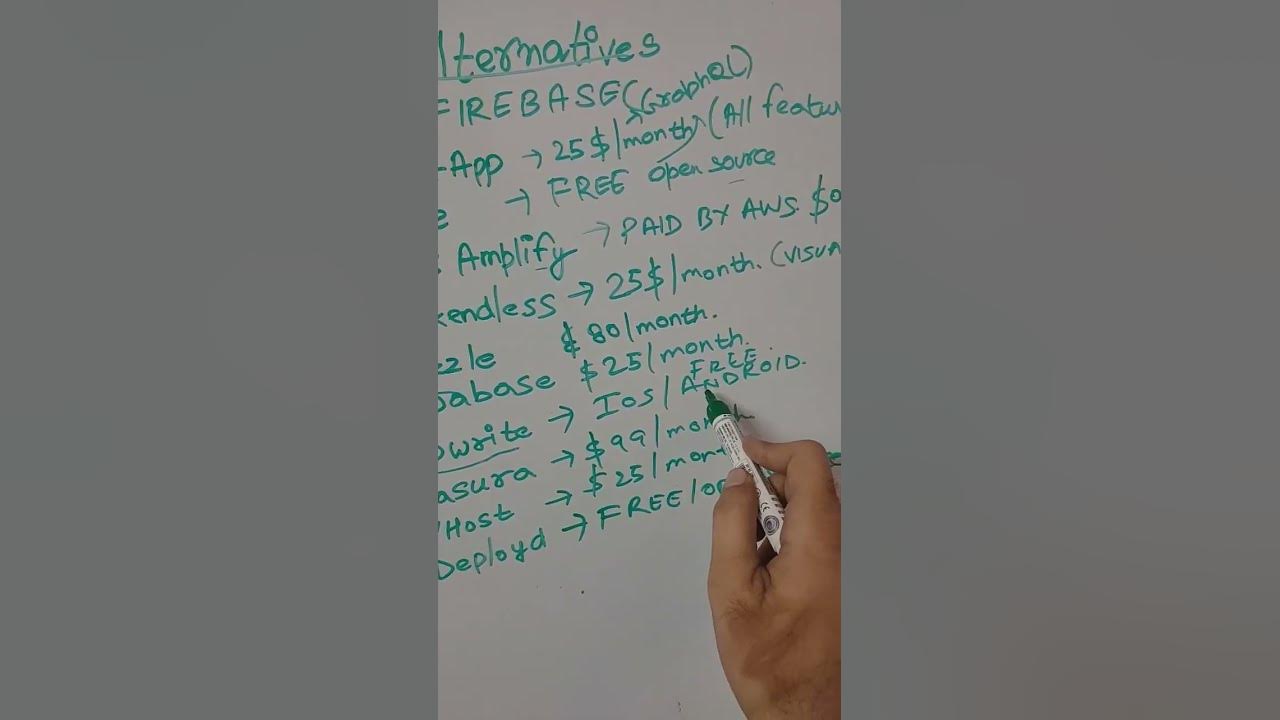 lternatives
FIREBASE (GraphQL)
-App → 25$/month (All featur
e → FREE open source
Amplify → PAID BY AWS $0
kendless → 25$/month. (VISUA
zzle $ 80/month.
pabase $25/month.
FREE
pwrite → IOS/ANDROID.
asura → $99/month
Host → $25/mont
Deployd → FREE/op